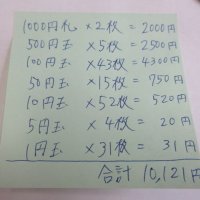 1000円札 ×2枚 = 2000円
500円玉 ×5枚 = 2500円
100円玉 ×43枚 = 4300円
50円玉 ×15枚 = 750円
10円玉 ×52枚 = 520円
5円玉 ×4枚 = 20円
1円玉 ×31枚 = 31円
合計 10,121円